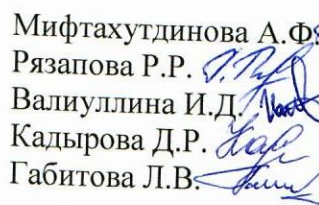 Мифтахутдинова А.Ф.
Рязапова Р.Р.
Валиуллина И.Д.
Кадырова Д.Р.
Габитова Л.В.